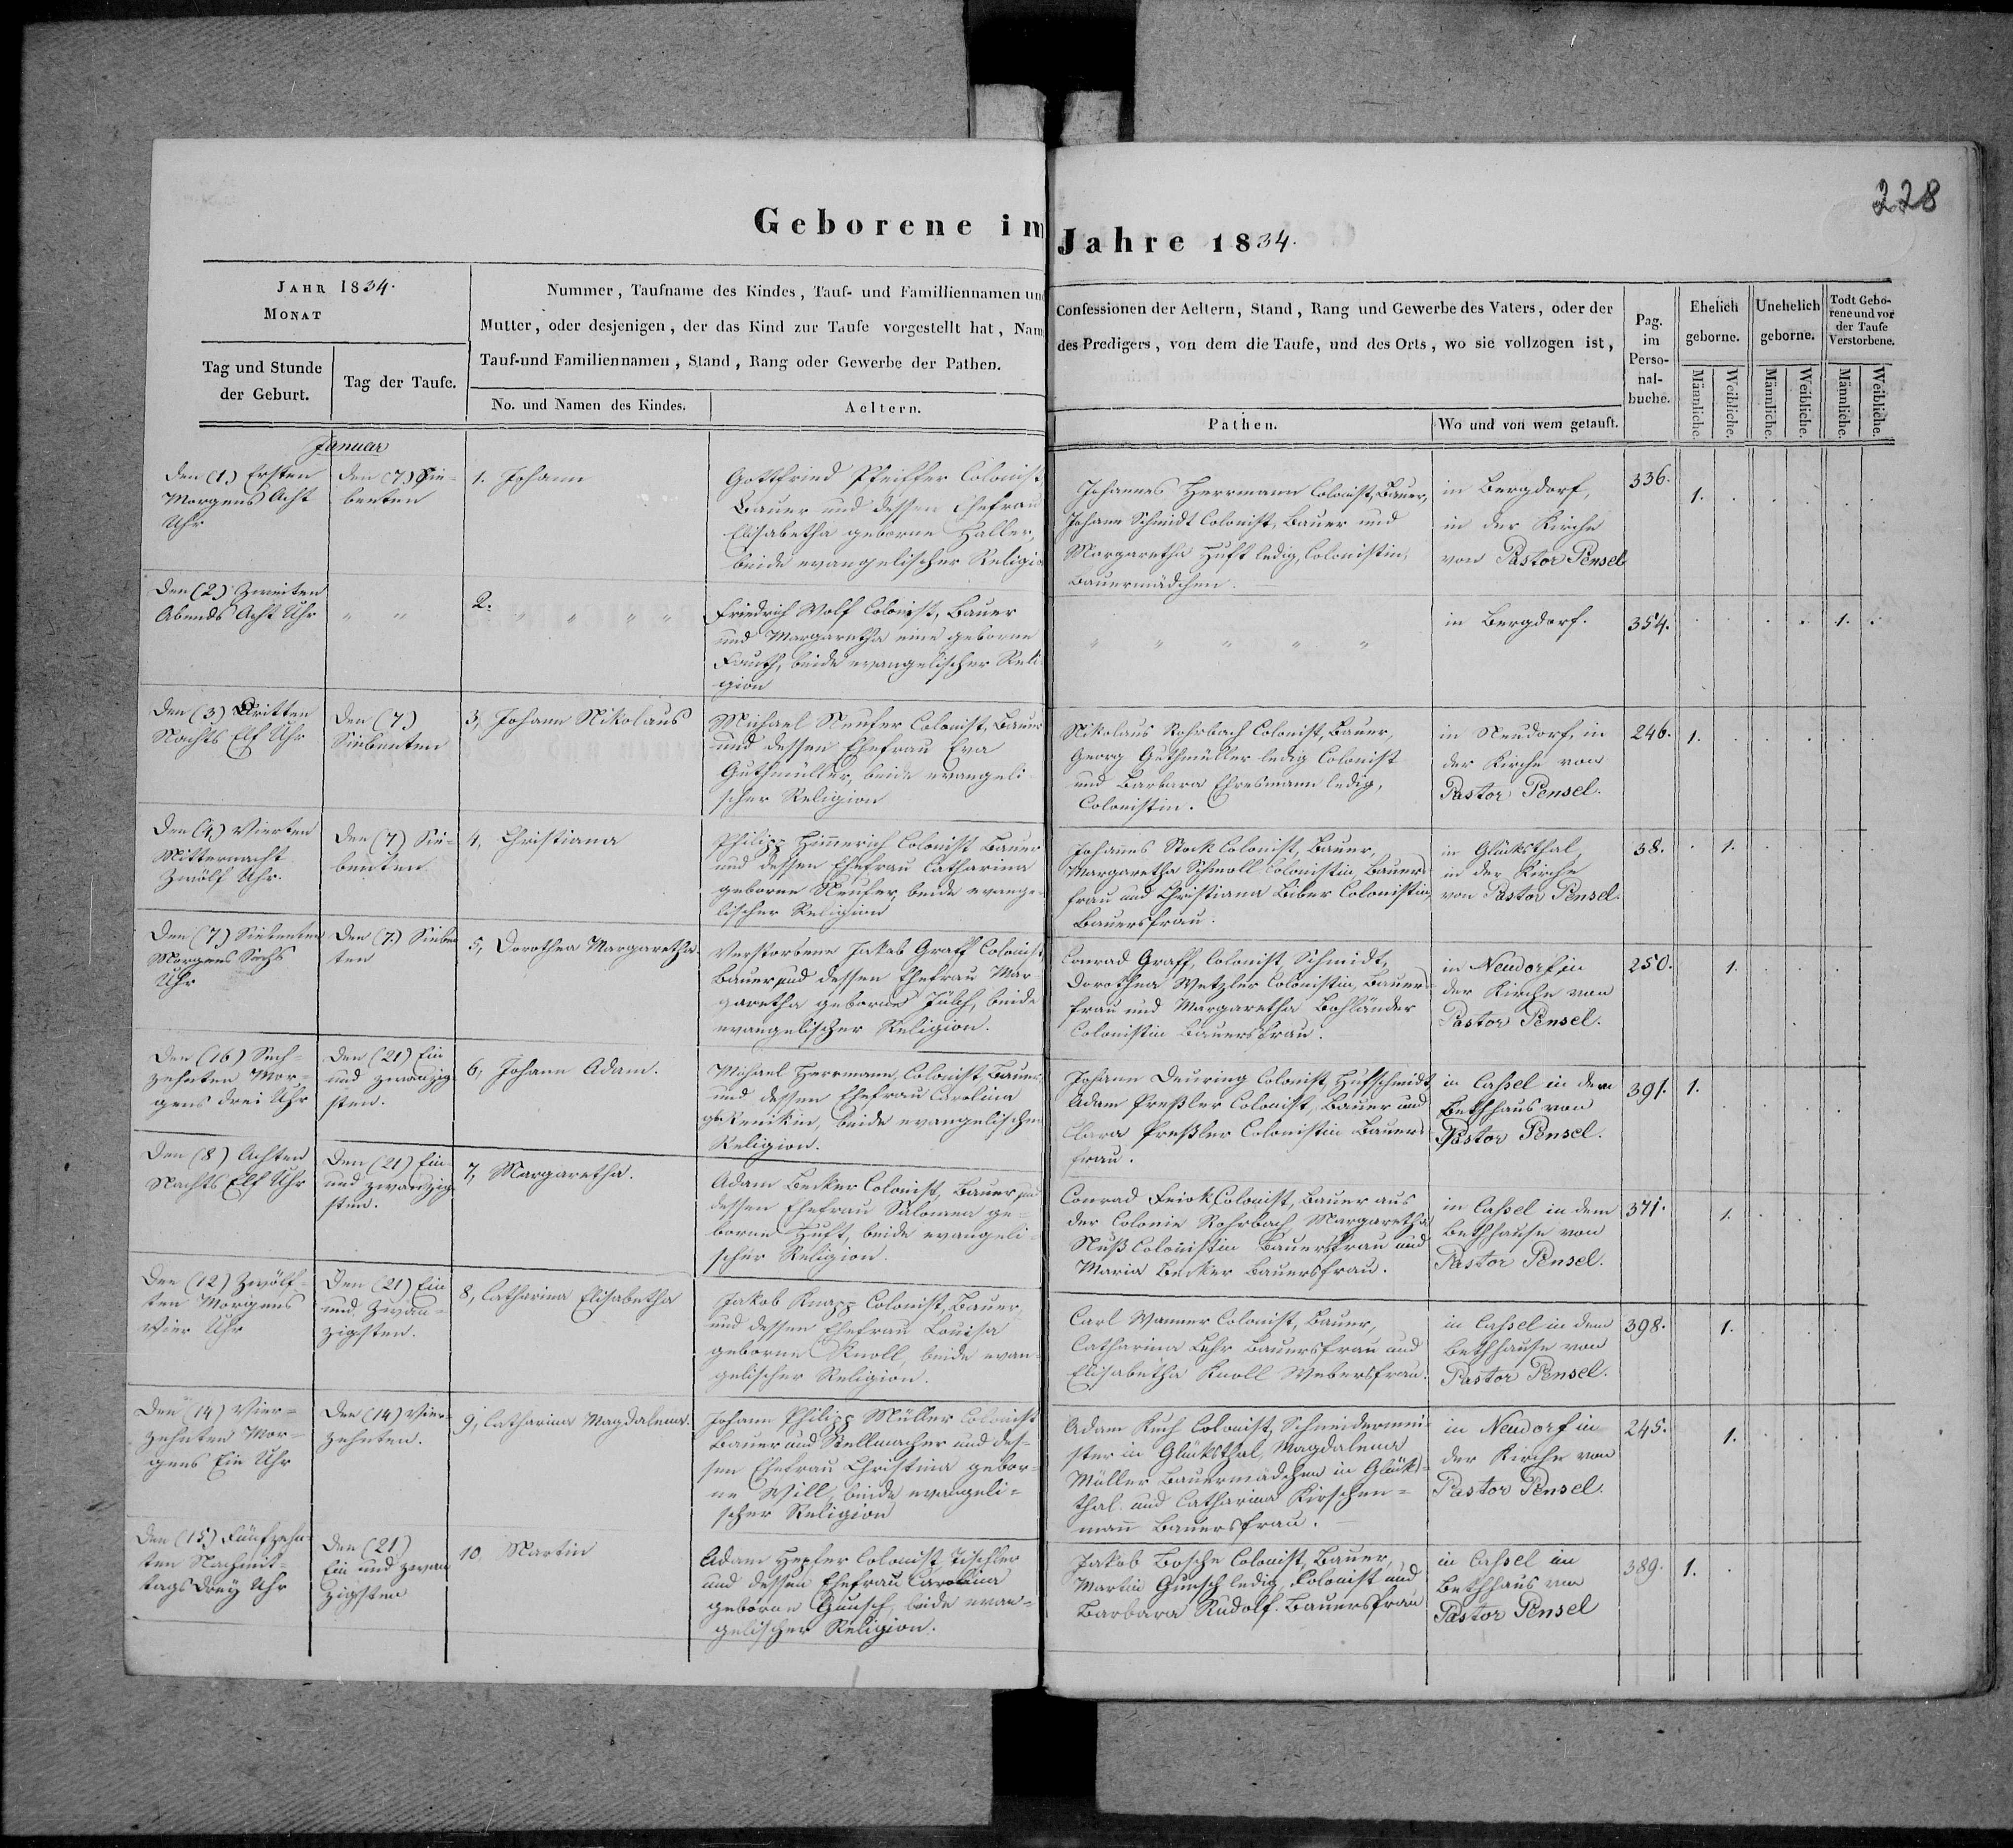 228
Geborene im Jahre 1834.
JAHR 1834.
MONAT
Tag und Stunde
der Geburt.
Tag der Taufe.
Nummer, Taufname des Kindes, Tauf- und Familliennamen und
Mutter, oder desjenigen, der das Kind zur Taufe vorgestellt hat, Nam
Tauf-und Familiennamen, Stand, Rang oder Gewerbe der Pathen.
No. und Namen des Kindes.
Aeltern.
Confessionen der Aeltern, Stand, Rang und Gewerbe des Vaters, oder der
des Predigers, von dem die Taufe, und des Orts, wo sie vollzogen ist,
Pathen.
Wo und von wem getauft.
Pag.
im
Perso-
nal-
buche.
Ehelich
geborne.
Unehelich
geborne.
Todt Gebo-
rene und vor
der Taufe
Verstorbene.
Männliche.
Weibliche.
Männliche.
Weibliche.
Männliche.
Weibliche.
Januar
Den (1) Ersten
Morgens Acht
Uhr
den (7) Sie-
benten
1. Johann
Gottfried Pfeiffer Colonist
Bauer und dessen Ehefrau
Elisabetha geborne Haller,
beide evangelischer Religio
Johannes Herrmann Colonist, Bauer,
Johann Schmidt Colonist, Bauer und
Margaretha Huft ledig, Colonistin,
Bauermädchen.
in Bergdorf,
in der Kirche
von Pastor Pensel
336.
1.
Den (2) Zweiten
Abends Acht Uhr
" "
2.
" " " "
Friedrich Wolf Colonist, Bauer
und Margaretha eine geborne
Fauth, beide evangelischer Reli
gion
" " " " "
in Bergdorf.
354.
1.
Den (3) Dritten
Nachts Elf Uhr
Den (7)
Siebenten
3, Johann Nikolaus
Michael Neufer Colonist, Bauer
und dessen Ehefrau Eva
Guthmüller, beide evangeli
scher Religion
Nikolaus Rohrbach Colonist, Bauer,
Georg Guthmüller ledig Colonist
und Barbara Ehresmann ledig,
Colonistin.
in Neudorf, in
der Kirche von
Pastor Pensel.
246.
1.
Den (4) Vierten
Mitternacht
Zwölf Uhr.
Den (7) Sie-
benten
4, Christiana
Philipp Himmerich Colonist Bauer
und dessen Ehefrau Catharina
geborne Neufer, beide evange-
lischer Religion
Johannes Stock Colonist, Bauer,
Margaretha Schnoll Colonistin, Bauers
frau und Christiana Bieber Colonistin,
Bauersfrau.
in Glücksthal
in der Kirche
von Pastor Pensel.
38.
1.
Den (7) Siebenten
Morgens Sechs
Uhr
Den (7.) Sieben
ten
5, Dorothea Margaretha
Verstorbene Jakob Graff Colonist
Bauer und dessen Ehefrau Mar
garetha geborne Julch, beide
evangelischer Religion.
Conrad Graff, Colonist, Schmidt,
Dorothea Wetzler Colonistin, Bauers
frau und Margaretha Bohländer
Colonistin Bauersfrau.
in Neudorf in
der Kirche von
Pastor Pensel.
250.
1.
Den (16) Sech-
zehnten Mor-
gens drei Uhr
Den (21) Ein
und zwanzig
sten.
6, Johann Adam.
Michael Herrmann, Colonist, Bauer,
und dessen Ehefrau Carolina
beide evangelischer
Religion.
Johann Deuring Colonist, Hufschmidt
Adam Preßler Colonist, Bauer und
Clara Preßler Colonistin Bauers
frau.
in Cassel in dem
Bethhaus von
Pastor Pensel.
391.
1.
Den (8) Achten
Nachts Elf Uhr
Den (21) Ein
und zwanzig
sten.
7, Margaretha.
Adam Becker Colonist, Bauer und
dessen Ehefrau Salomea ge-
borne Huft, beide evangeli-
scher Religion.
Conrad Feick Colonist, Bauer aus
der Colonie Rohrbach, Margaretha
Nuß Colonistin Bauersfrau und
Maria Becker Bauersfrau.
in Cassel in dem
Bethhause von
Pastor Pensel.
371.
1.
Den (12) Zwölf-
ten Morgens
Vier Uhr
Den (21) Ein
und Zwan-
zigsten.
8, Catharina Elisabetha
Jakob Knapp Colonist, Bauer,
und dessen Ehefrau Louisa
geborne Knoll, beide evan-
gelischer Religion.
Carl Wanner Colonist, Bauer,
Catharina Lehr Bauersfrau und
Elisabetha Knoll Webersfrau.
in Cassel in dem
Bethhause von
Pastor Pensel.
398.
1.
Den (14) Vier-
zehnten Mor-
gens Ein Uhr
Den (14) Vier-
zehnten.
9, Catharina Magdalena.
Johann Philipp Müller Colonist
Bauer und Stellmacher und des-
sen Ehefrau Christina gebor-
ne Will, beide evangeli-
scher Religion
Adam Ruch Colonist, Schneidermei-
ster in Glücksthal, Magdalena
Müller Bauermädchen in Glücks-
thal und Catharina Kirschen-
mann Bauersfrau.
in Neudorf in
der Kirche von
Pastor Pensel.
245.
1.
Den (15) Fünfzehn
ten Nachmit-
tags Drey Uhr
Den (21)
Ein und Zwan
zigsten
10, Martin
Adam Hepfer Colonist Tischler
und dessen Ehefrau Carolina
geborne Gunsch, beide evan-
gelischer Religion.
Jakob Bosche Colonist, Bauer,
Martin Gunsch ledig, Colonist und
Barbara Rudolf. Bauersfrau
in Cassel im
Bethhaus von
Pastor Pensel
389.
1.